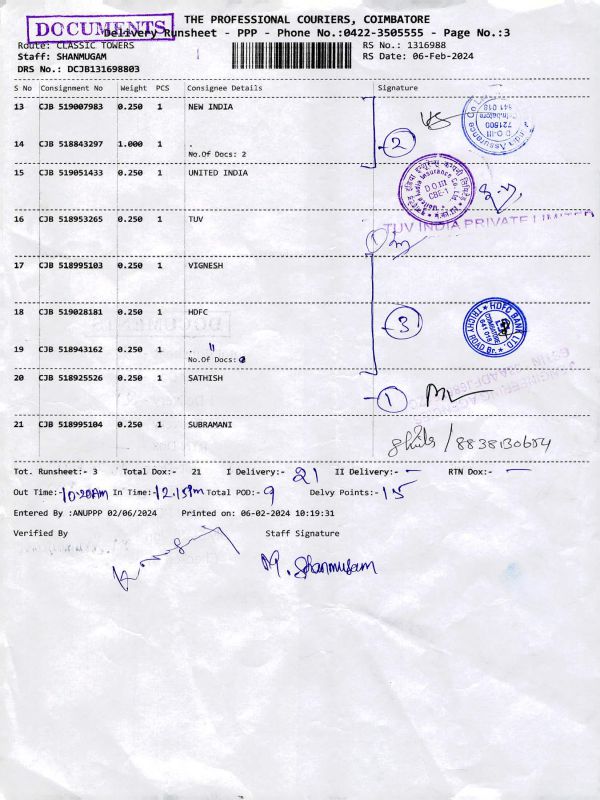 THE PROFESSIONAL COURIERS, COIMBATORE
DOCUMENTS
Delivery Runsheet - PPP - Phone No.:0422-3505555 - Page No.:3
Route: CLASSIC TOWERS
RS No.: 1316988
Staff: SHANMUGAM
RS Date: 06-Feb-2024
DRS No.: DCJB131698803
S No Consignment No Weight PCS Consignee Details Signature
13 CJB 519007983 0.250 1 NEW INDIA
2
14 CJB 518843297 1.000 1 .
No.Of Docs: 2
15 CJB 519051433 0.250 1 UNITED INDIA
D.O.III
CBE-1
16 CJB 518953265 0.250 1 TUV
TUV INDIA PRIVATE LIMITED
1
17 CJB 518995103 0.250 1 VIGNESH
18 CJB 519028181 0.250 1 HDFC
3
HDFC BANK LTD.
TRICHY ROAD Br.
19 CJB 518943162 0.250 1 . "
No.Of Docs:
20 CJB 518925526 0.250 1 SATHISH
1
21 CJB 518995104 0.250 1 SUBRAMANI
Tot. Runsheet:- 3 Total Dox:- 21 I Delivery:- 21 II Delivery:- — RTN Dox:- —
Out Time:- 10:20AM In Time:- 12.15PM Total POD:- 9 Delvy Points:- 15
Entered By :ANUPPP 02/06/2024 Printed on: 06-02-2024 10:19:31
Verified By Staff Signature
M. Shanmugam